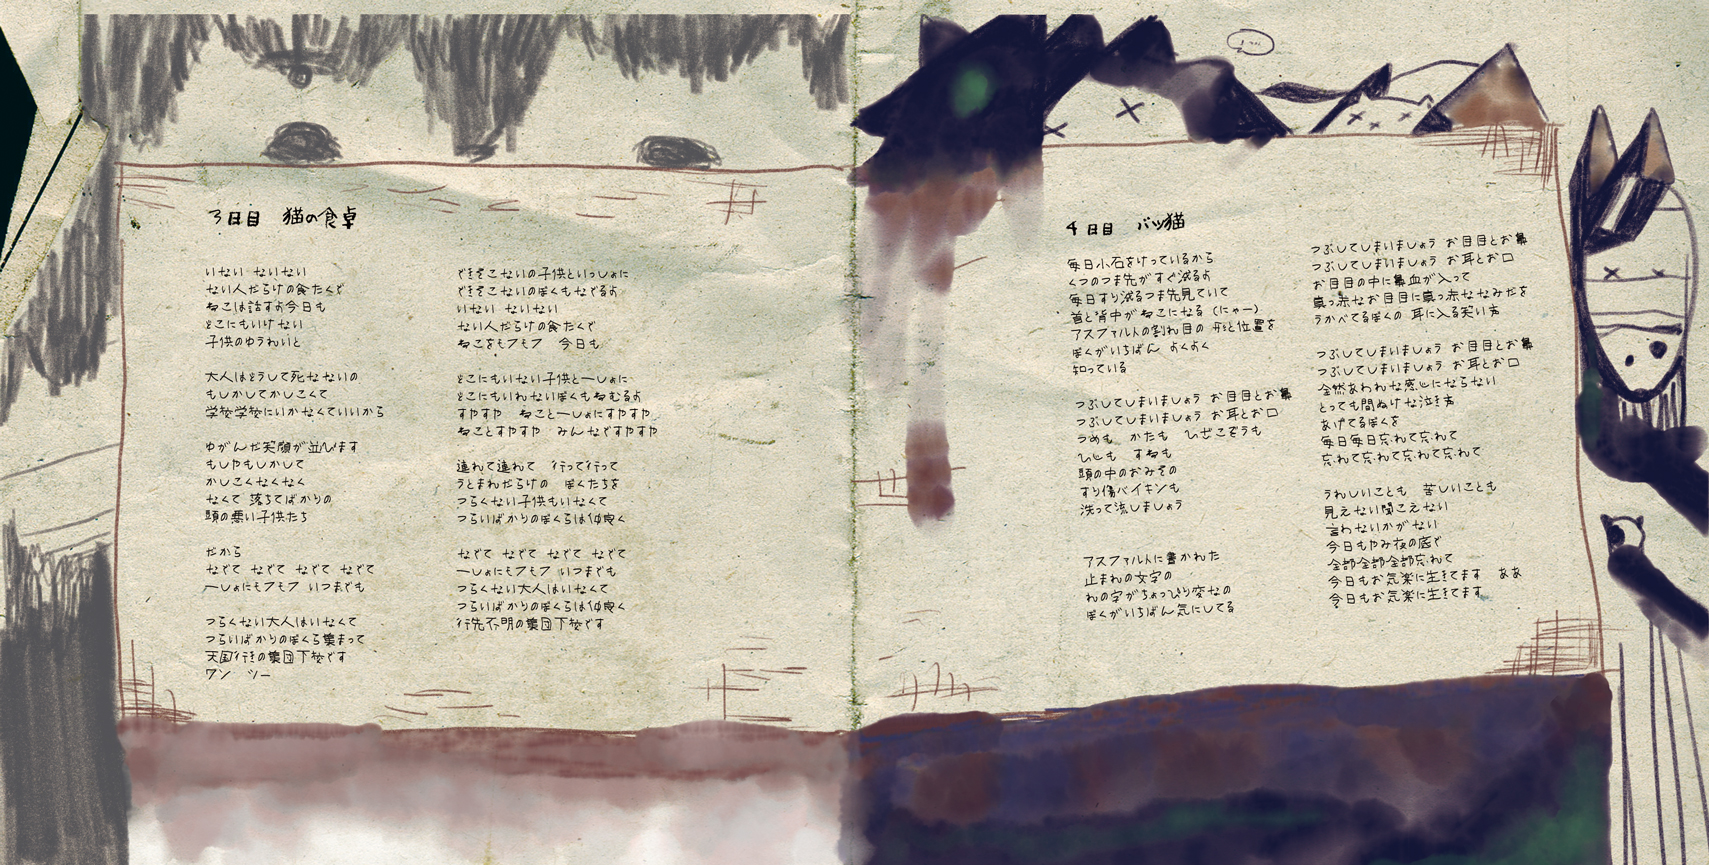 3日目 猫の食卓
いない ないない
ない人だらけの食たくで
ねこは話すよ今日も
どこにもいけない
子供のゆうれいと
大人はどうして死なないの
もしかしてかしこくて
学校学校にいかなくていいから
ゆがんだ笑顔が並びます
もしやもしかして
かしこくなくなく
なくて 落ちてばかりの
頭の悪い子供たち
だから
なでて なでて なでて なでて
一しょにモフモフ いつまでも
つらくない大人はいなくて
つらいばかりのぼくら集まって
天国行きの集団下校です
ワン ツー
できそこないの子供といっしょに
できそこないのぼくもなでるよ
いない ないない
ない人だらけの食たくで
ねこをモフモフ 今日も
どこにもいない子供と一しょに
どこにもいれないぼくもねむるよ
すやすや ねこと一しょにすやすや
ねことすやすや みんなですやすや
連れて連れて 行って行って
うとまれだらけの ぼくたちを
つらくない子供もいなくて
つらいばかりのぼくらは仲良く
なでて なでて なでて なでて
一しょにモフモフ いつまでも
つらくない大人はいなくて
つらいばかりのぼくらは仲良く
行先不明の集団下校です
4日目 バツ猫
毎日小石をけっているから
くつのつま先がすぐ減るよ
毎日すり減るつま先見ていて
首と背中がねこになる(にゃー)
アスファルトの割れ目の 形と位置を
ぼくがいちばん よくよく
知っている
つぶしてしまいましょう お目目とお鼻
つぶしてしまいましょう お耳とお口
うめも かたも ひざこぞうも
ひじも すねも
頭の中のおみその
すり傷バイキンも
洗って流しましょう
アスファルトに書かれた
止まれの文字の
れの字がちょっぴり変なの
ぼくがいちばん気にしてる
つぶしてしまいましょう お目目とお鼻
つぶしてしまいましょう お耳とお口
お目目の中に鼻血が入って
真っ赤なお目目に真っ赤ななみだを
うかべてるぼくの 耳に入る笑い声
つぶしてしまいましょう お目目とお鼻
つぶしてしまいましょう お耳とお口
全然あわれな感じにならない
とっても間ぬけな泣き声
あげてるぼくを
毎日毎日忘れて忘れて
忘れて忘れて忘れて忘れて
うれしいことも 苦しいことも
見えない聞こえない
言わないかがない
今日もやみ夜の底で
全部全部全部忘れて
今日もお気楽に生きてます ああ
今日もお気楽に生きてます